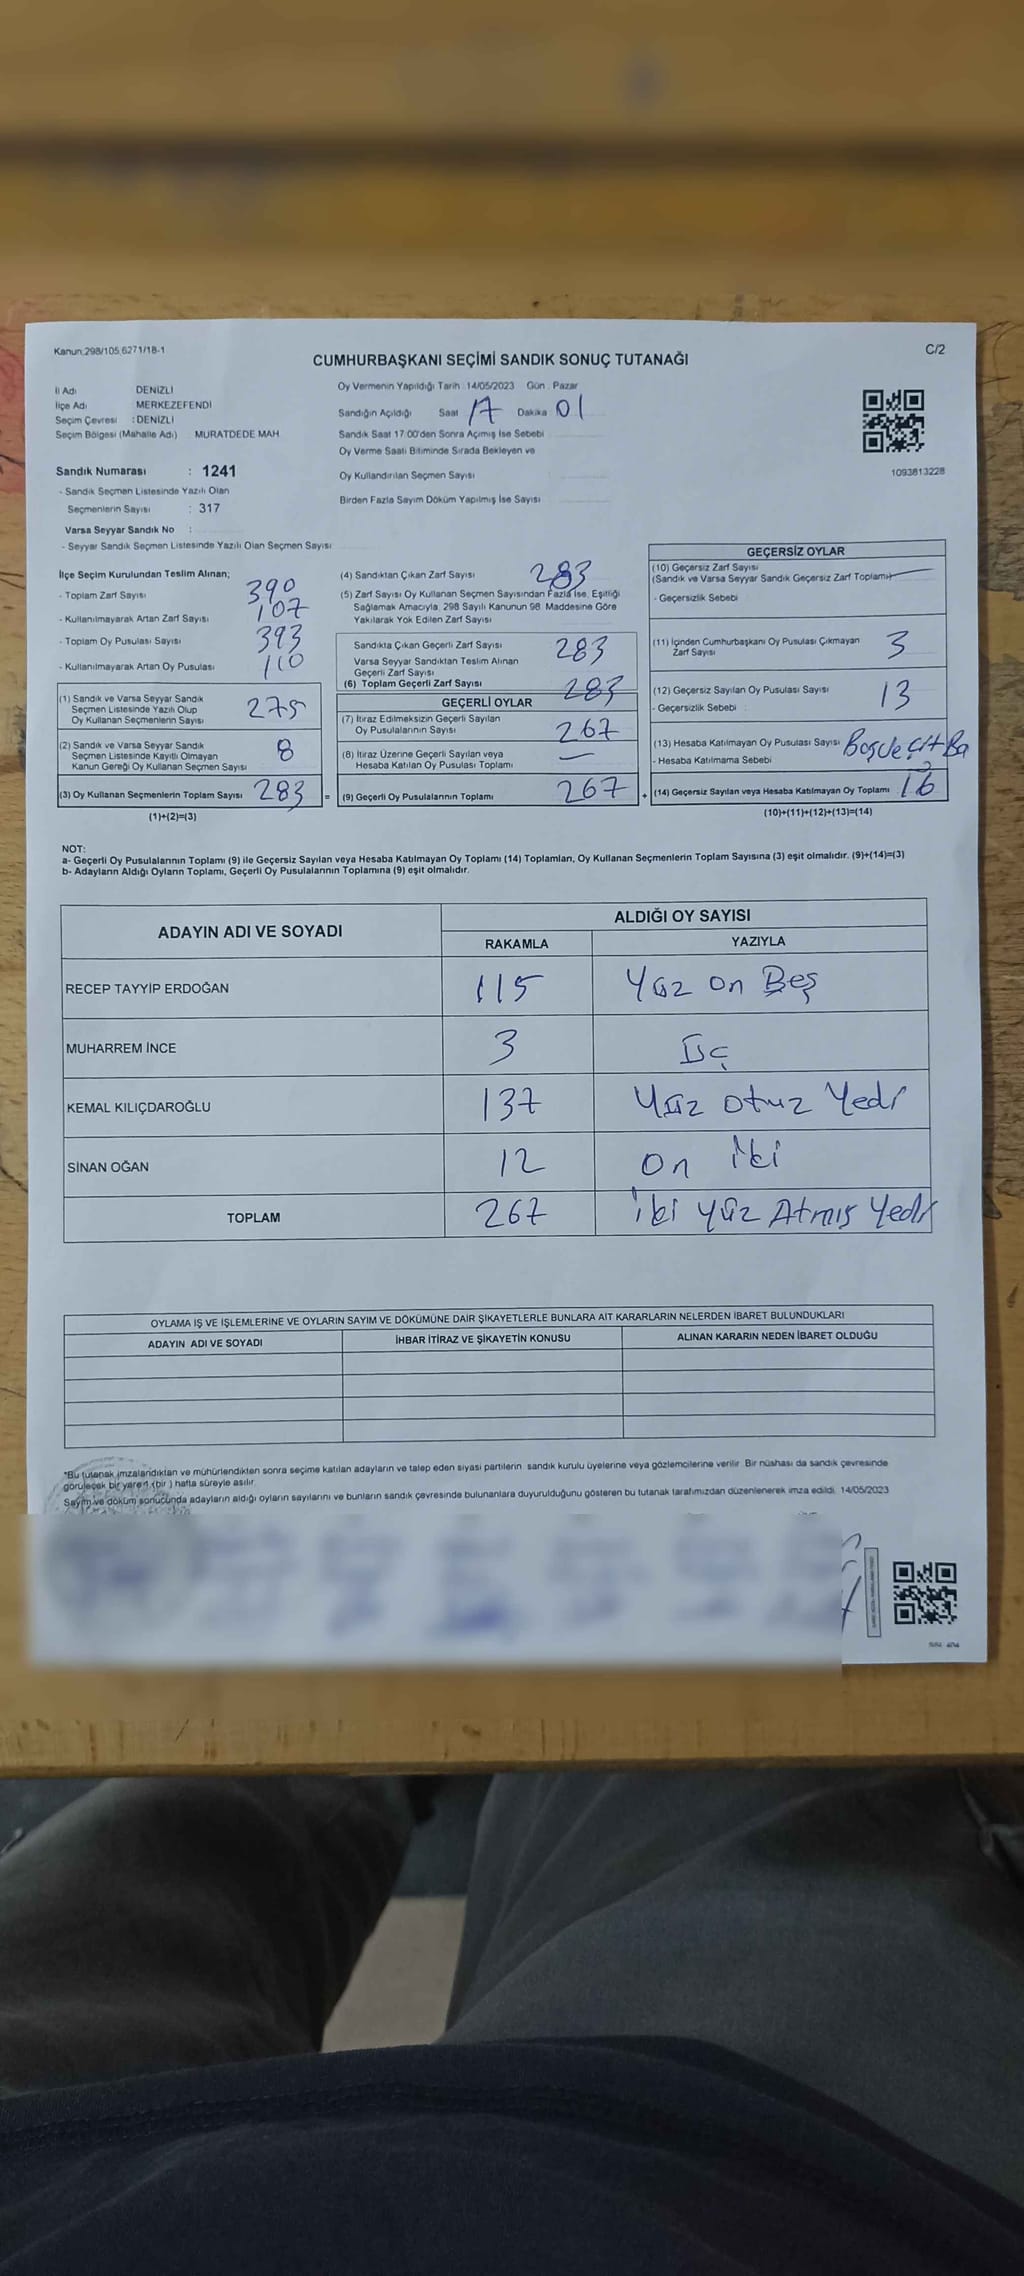 Kanun:298/105,6271/18-1
C/2
CUMHURBAŞKANI SEÇİMİ SANDIK SONUÇ TUTANAĞI
İl Adı DENİZLİ
İlçe Adı MERKEZEFENDİ
Seçim Çevresi : DENİZLİ
Seçim Bölgesi (Mahalle Adı) MURATDEDE MAH
Sandık Numarası : 1241
- Sandık Seçmen Listesinde Yazılı Olan
Seçmenlerin Sayısı : 317
Varsa Seyyar Sandık No :
- Seyyar Sandık Seçmen Listesinde Yazılı Olan Seçmen Sayısı
Oy Vermenin Yapıldığı Tarih : 14/05/2023 Gün : Pazar
Sandığın Açıldığı Saat 17 Dakika 01
Sandık Saat 17:00'den Sonra Açımış İse Sebebi
Oy Verme Saati Bitiminde Sırada Bekleyen ve
Oy Kullandırılan Seçmen Sayısı
Birden Fazla Sayım Döküm Yapılmış İse Sayısı
1093813228
İlçe Seçim Kurulundan Teslim Alınan;
- Toplam Zarf Sayısı 390
- Kullanılmayarak Artan Zarf Sayısı 107
- Toplam Oy Pusulası Sayısı 393
- Kullanılmayarak Artan Oy Pusulası 110
(1) Sandık ve Varsa Seyyar Sandık
Seçmen Listesinde Yazılı Olup
Oy Kullanan Seçmenlerin Sayısı 275
(2) Sandık ve Varsa Seyyar Sandık
Seçmen Listesinde Kayıtlı Olmayan
Kanun Gereği Oy Kullanan Seçmen Sayısı 8
(3) Oy Kullanan Seçmenlerin Toplam Sayısı 283 =
(1)+(2)=(3)
(4) Sandıktan Çıkan Zarf Sayısı 283
(5) Zarf Sayısı Oy Kullanan Seçmen Sayısından Fazla İse, Eşitliği
Sağlamak Amacıyla, 298 Sayılı Kanunun 98. Maddesine Göre
Yakılarak Yok Edilen Zarf Sayısı
Sandıkta Çıkan Geçerli Zarf Sayısı 283
Varsa Seyyar Sandıktan Teslim Alınan
Geçerli Zarf Sayısı
(6) Toplam Geçerli Zarf Sayısı 283
GEÇERLİ OYLAR
(7) İtiraz Edilmeksizin Geçerli Sayılan
Oy Pusulalarının Sayısı 267
(8) İtiraz Üzerine Geçerli Sayılan veya
Hesaba Katılan Oy Pusulası Toplamı —
(9) Geçerli Oy Pusulalarının Toplamı 267 +
GEÇERSİZ OYLAR
(10) Geçersiz Zarf Sayısı
(Sandık ve Varsa Seyyar Sandık Geçersiz Zarf Toplamı) —
- Geçersizlik Sebebi
(11) İçinden Cumhurbaşkanı Oy Pusulası Çıkmayan
Zarf Sayısı 3
(12) Geçersiz Sayılan Oy Pusulası Sayısı 13
- Geçersizlik Sebebi
(13) Hesaba Katılmayan Oy Pusulası Sayısı
- Hesaba Katılmama Sebebi
(14) Geçersiz Sayılan veya Hesaba Katılmayan Oy Toplamı 16
(10)+(11)+(12)+(13)=(14)
NOT:
a- Geçerli Oy Pusulalarının Toplamı (9) ile Geçersiz Sayılan veya Hesaba Katılmayan Oy Toplamı (14) Toplamları, Oy Kullanan Seçmenlerin Toplam Sayısına (3) eşit olmalıdır. (9)+(14)=(3)
b- Adayların Aldığı Oyların Toplamı, Geçerli Oy Pusulalarının Toplamına (9) eşit olmalıdır.
ADAYIN ADI VE SOYADI ALDIĞI OY SAYISI
RAKAMLA YAZIYLA
RECEP TAYYİP ERDOĞAN 115 Yüz on Beş
MUHARREM İNCE 3 Üç
KEMAL KILIÇDAROĞLU 137 Yüz otuz Yedi
SİNAN OĞAN 12 On iki
TOPLAM 267 iki yüz Atmış Yedi
OYLAMA İŞ VE İŞLEMLERİNE VE OYLARIN SAYIM VE DÖKÜMÜNE DAİR ŞİKAYETLERLE BUNLARA AİT KARARLARIN NELERDEN İBARET BULUNDUKLARI
ADAYIN ADI VE SOYADI İHBAR İTİRAZ VE ŞİKAYETİN KONUSU ALINAN KARARIN NEDEN İBARET OLDUĞU
*Bu tutanak imzalandıktan ve mühürlendikten sonra seçime katılan adayların ve talep eden siyasi partilerin sandık kurulu üyelerine veya gözlemcilerine verilir. Bir nüshası da sandık çevresinde
görülecek bir yere 1 (bir ) hafta süreyle asılır.
Sayım ve döküm sonucunda adayların aldığı oyların sayılarını ve bunların sandık çevresinde bulunanlara duyurulduğunu gösteren bu tutanak tarafımızdan düzenlenerek imza edildi. 14/05/2023